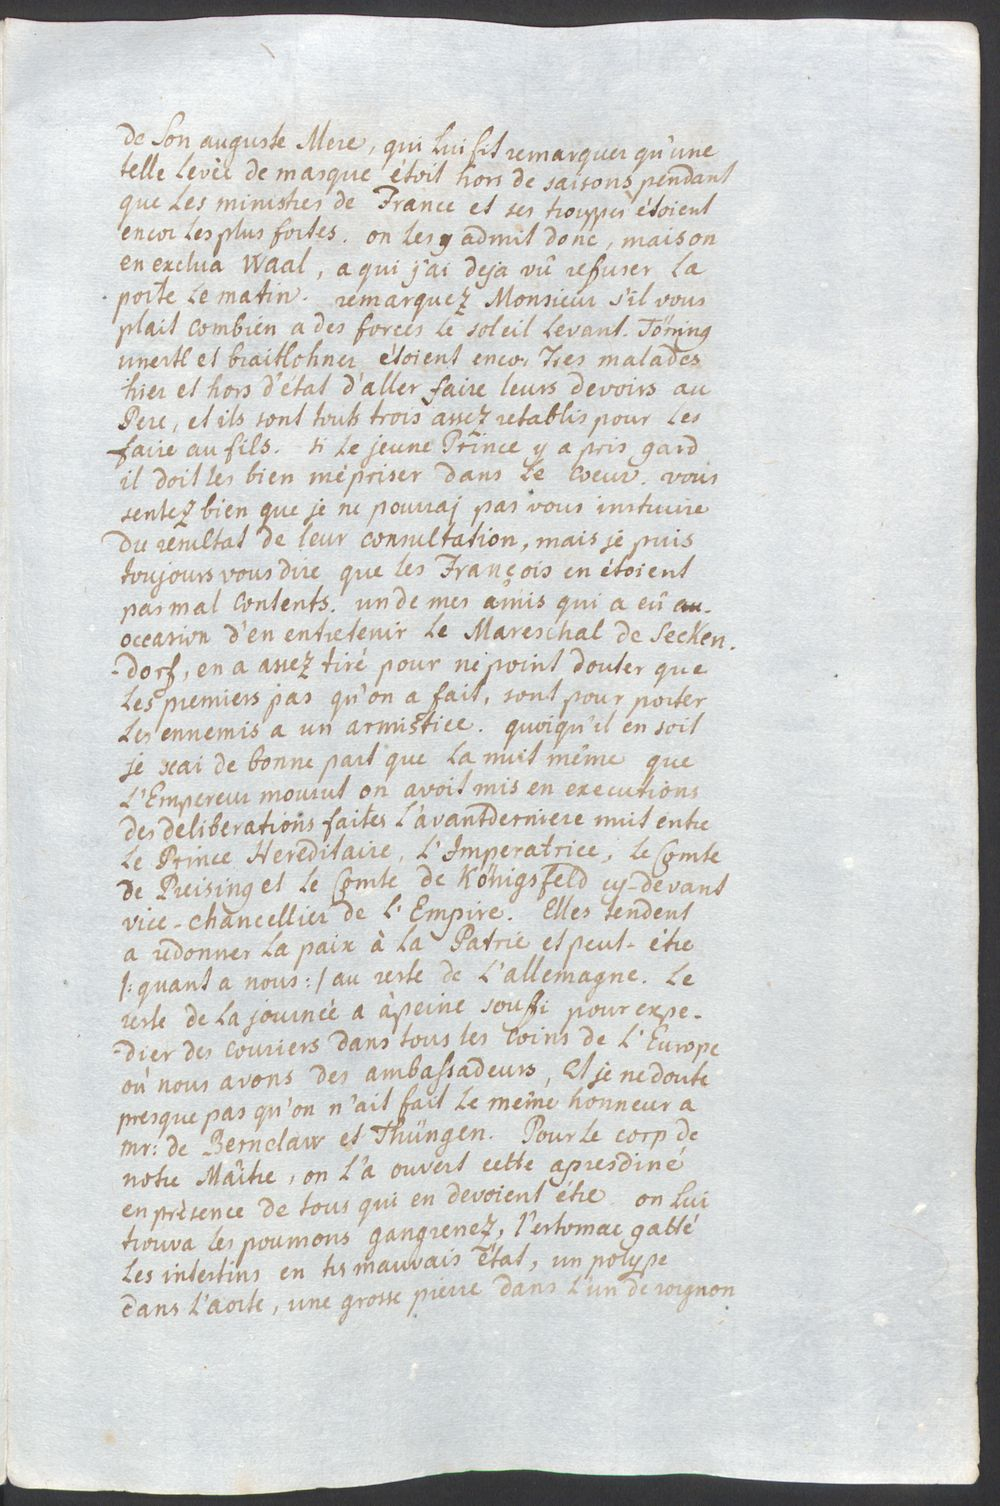 de Son auguste Mere, qui Lui fit remarquer qu'une
telle Levée de masque étoit hors de saisons pendant
que Les ministres de France et ses trouppes étoient
encor Les plus fortes. on Les y admit donc, mais on
en exclua Waal, a qui j'ai deja vû refuser La
porte Le matin. remarquez Monsieur s'il vous
plait combien a des forces Le soleil Levant. Törring
unertl et braitlohner étoient encor Tres malades
hier et hors d'état d'aller faire leurs devoirs au
Pere, et ils sont touts trois assez retablis pour Les
faire au fils. si Le jeune Prince y a pris gard
il doit Les bien mépriser dans Le Coeur. vous
sentez bien que je ne pourraj pas vous instruire
du resultat de leur consultation, mais je puis
toujours vous dire que les François en étoient
pas mal Contents. un de mes amis qui a eû
occasion d'en entretenir Le Mareschal de Secken-
-dorf, en a assez tiré pour ne point douter que
Les premiers pas qu'on a fait, sont pour porter
Les ennemis a un armistice. quoiqu'il en soit
je scai de bonne part que La nuit même que
L'Empereur mourut on avoit mis en executions
des deliberations faites L'avantderniere nuit entre
Le Prince Hereditaire, L'Imperatrice, Le Comte
de Preising et Le Comte de Königsfeld cy-devant
vice-chancellier de L'Empire. Elles tendent
a redonner La paix à La Patrie et peut-être
/: quant a nous :/ au reste de L'allemagne. Le
reste de La journeé a àpeine souffi pour expe-
-dier des couriers dans tous les coins de L'Europe
où nous avons des ambassadeurs, Et je ne doute
presque pas qu'on n'ait fait Le même honneur a
mr: de Bernclaw et Thüngen. Pour Le corp de
notre Maître, on L'a ouvert cette apresdiné
en présence de tous qui en devoient étre on Lui
trouva Les poumons gangrenez, l'estomac gatté
Les intestins en trs mauvais état, un polype
dans L'aorte, une grosse pierre dans L'un de roignon